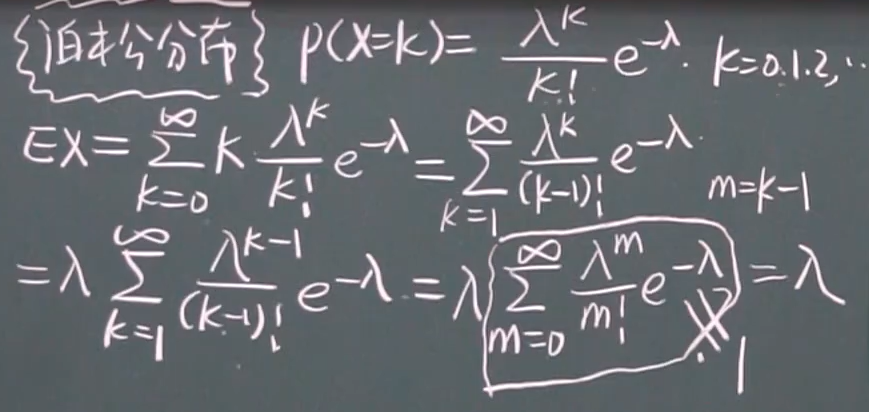 泊松分布 P(X=k)= λ^k/k! e^{-λ}. k=0.1.2,...
EX= ∑_{k=0}^{∞} k λ^k/k! e^{-λ} = ∑_{k=1}^{∞} λ^k/(k-1)! e^{-λ}. m=k-1
=λ ∑_{k=1}^{∞} λ^{k-1}/(k-1)! e^{-λ} = λ ∑_{m=0}^{∞} λ^m/m! e^{-λ} = λ
1